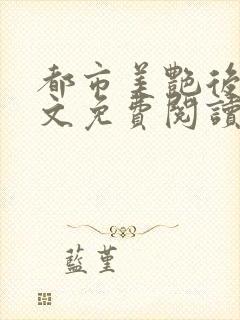 都市美艷後
文免費閱讀
藍堇